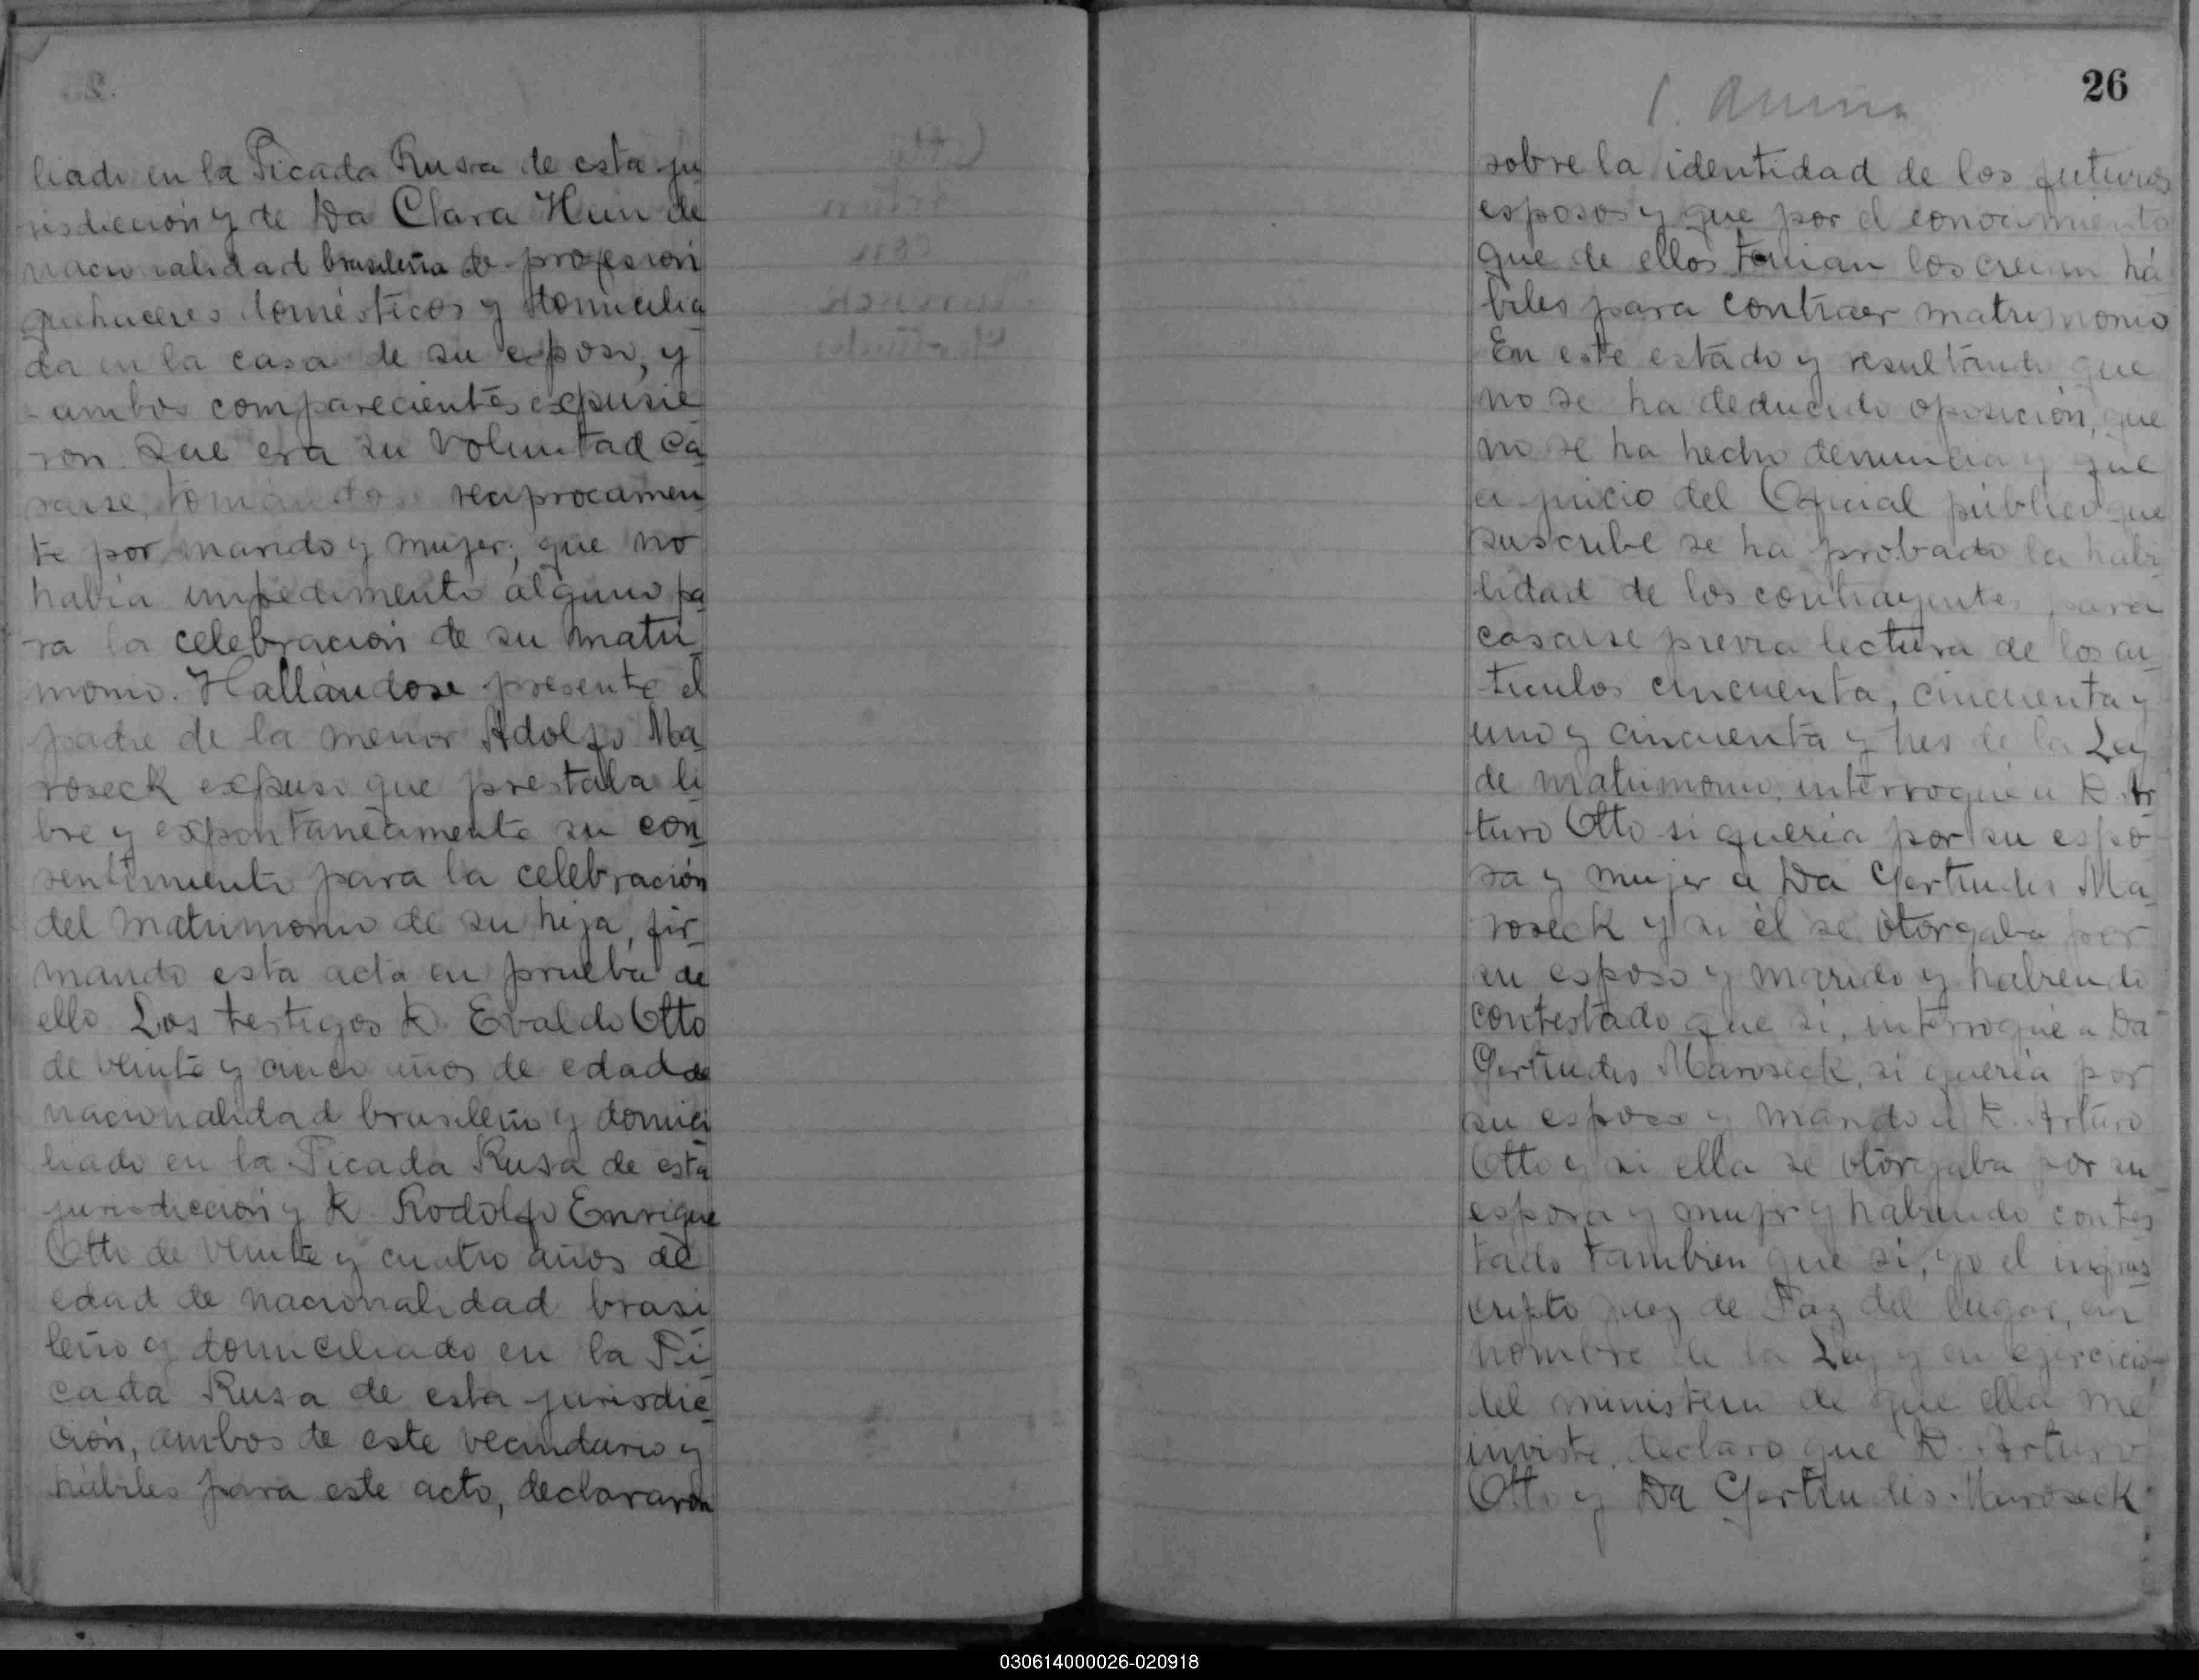 liado en la Picada Rusa de esta ju
risdiccion y de Da Clara Hun de
nacionalidad brasileña de profesion
quehaceres domésticos y domicilia
da en la casa de su esposo, y
ambos comparecientes expusie
ron. Que era su voluntad ca
sarse, tomandose reciprocamen
te por marido y mujer; que no
habia impedimento alguno pa
ra la celebracion de su matri
monio. Hallándose presente el
padre de la menor Adolfo Ma
roseck expuso que prestaba li
bre y expontaneamente su con
sentimiento para la celebración
del matrimonio de su hija, fir
mando esta acta en prueba de
ello. Los testigos D. Evaldo Otto
de veinte y cinco años de edad de
nacionalidad brasileño y domici
liado en la Picada Rusa de esta
jurisdiccion y D. Rodolfo Enrique
Otto de veinte y cuatro años de
edad de nacionalidad brasi
leño y domiciliado en la Pi
cada Rusa de esta jurisdic
ción, ambos de este vecindario y
hábiles para este acto, declararon
26
sobre la identidad de los futuros
esposos y que por el conocimiento
que de ellos tenian los creian há
biles para contraer matrimonio
En este estado y resultando que
no se ha deducido oposición, que
no se ha hecho denuncia y que
a juicio del Oficial público que
suscribe se ha probado la habi
lidad de los contrayentes para
casarse previa lectura de los ar
ticulos cincuenta, cincuenta y
uno y cincuenta y tres de la Ley
de matrimonio, interrogué a D. Ar
turo Otto si queria por su espo
sa y mujer a Da Gertrudis Ma
roseck y si él se otorgaba por
su esposo y marido y habiendo
contestado que si, interrogué a Da
Gertrudis Maroseck, si queria por
su esposo y marido a D. Arturo
Otto y si ella se otorgaba por su
esposa y mujer y habiendo contes
tado tambien que si, yo el infras
cripto Juez de Paz del lugar, en
nombre de la Ley y en ejercicio
del ministerio de que ella me
inviste, declaro que D. Arturo
Otto y Da Gertrudis Maroseck
030614000026-020918